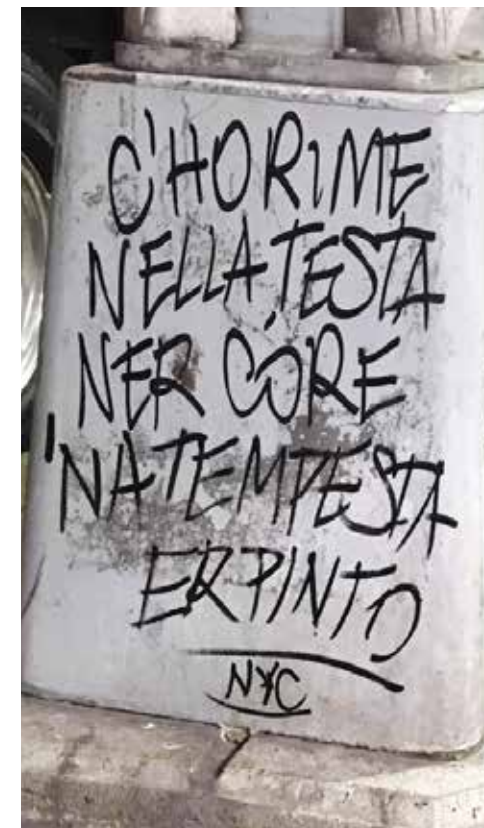 C'HO RIME
NELLA TESTA
NER CÓRE
'NA TEMPESTA
ER PINTO
NYC